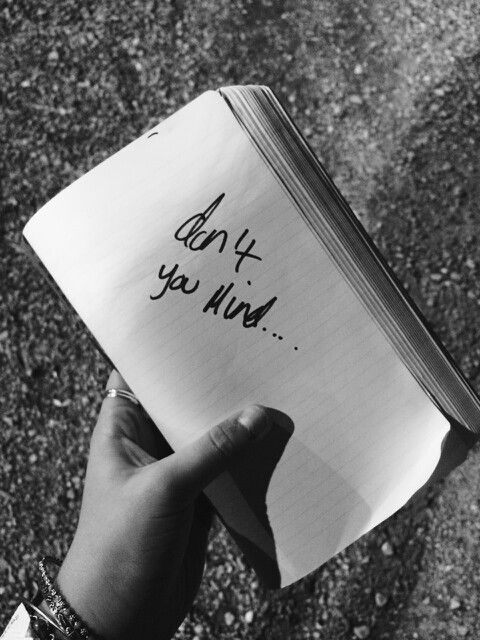 don't
you Mind....